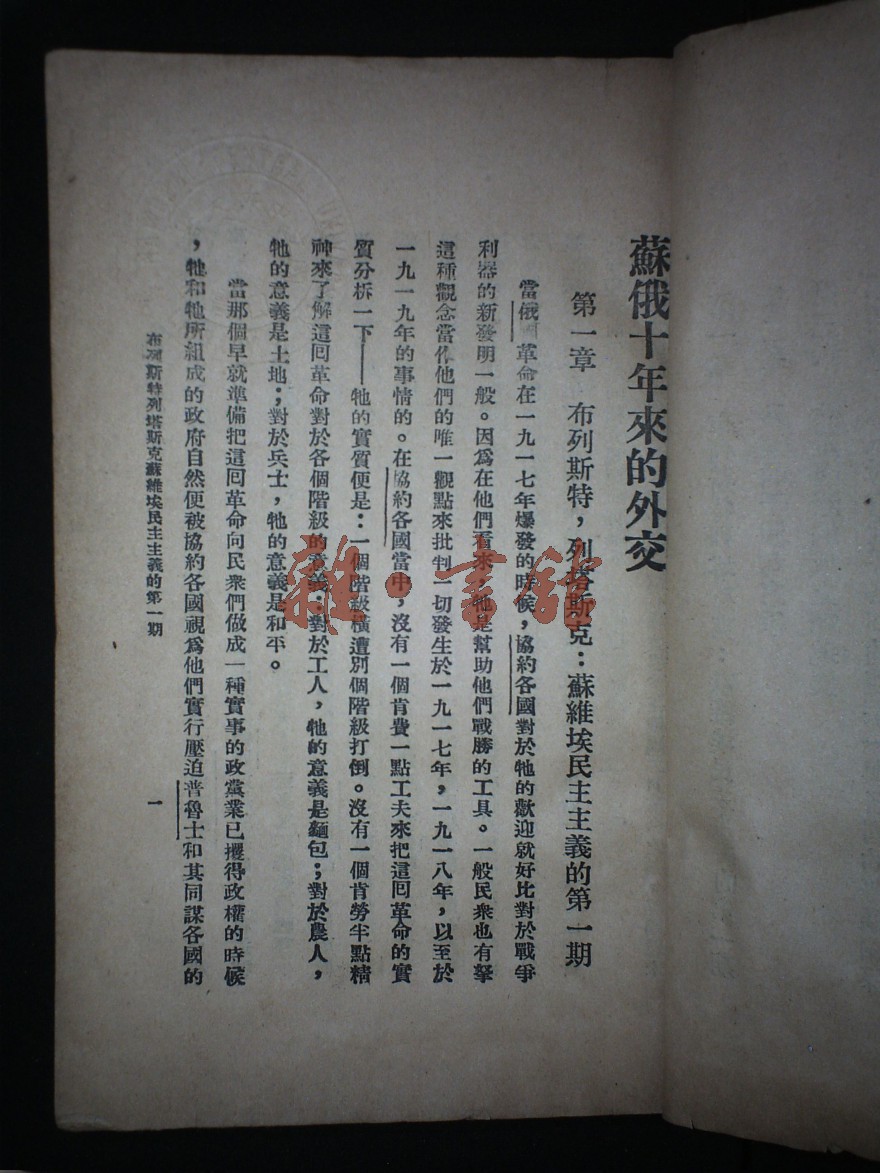 蘇俄十年來的外交
第一章　布列斯特，列塔斯克：蘇維埃民主主義的第一期
當俄國革命在一九一七年爆發的時候，協約各國對於牠的歡迎就好比對於戰爭
利器的新發明一般。因爲在他們看來，牠是幫助他們戰勝的工具。一般民衆也有拏
這種觀念當作他們的唯一觀點來批判一切發生於一九一七年，一九一八年，以至於
一九一九年的事情的。在協約各國當中，沒有一個肯費一點工夫來把這囘革命的實
質分析一下——牠的實質便是：一個階級橫遭別個階級打倒。沒有一個肯勞半點精
神來了解這囘革命對於各個階級的意義：對於工人，牠的意義是麵包；對於農人，
牠的意義是土地；對於兵士，牠的意義是和平。
當那個早就準備把這囘革命向民衆們做成一種實事的政黨業已攫得政權的時候
，牠和牠所組成的政府自然便被協約各國視爲他們實行壓迫普魯士和其同謀各國的
布列斯特列塔斯克蘇維埃民主主義的第一期
一
雜·書館